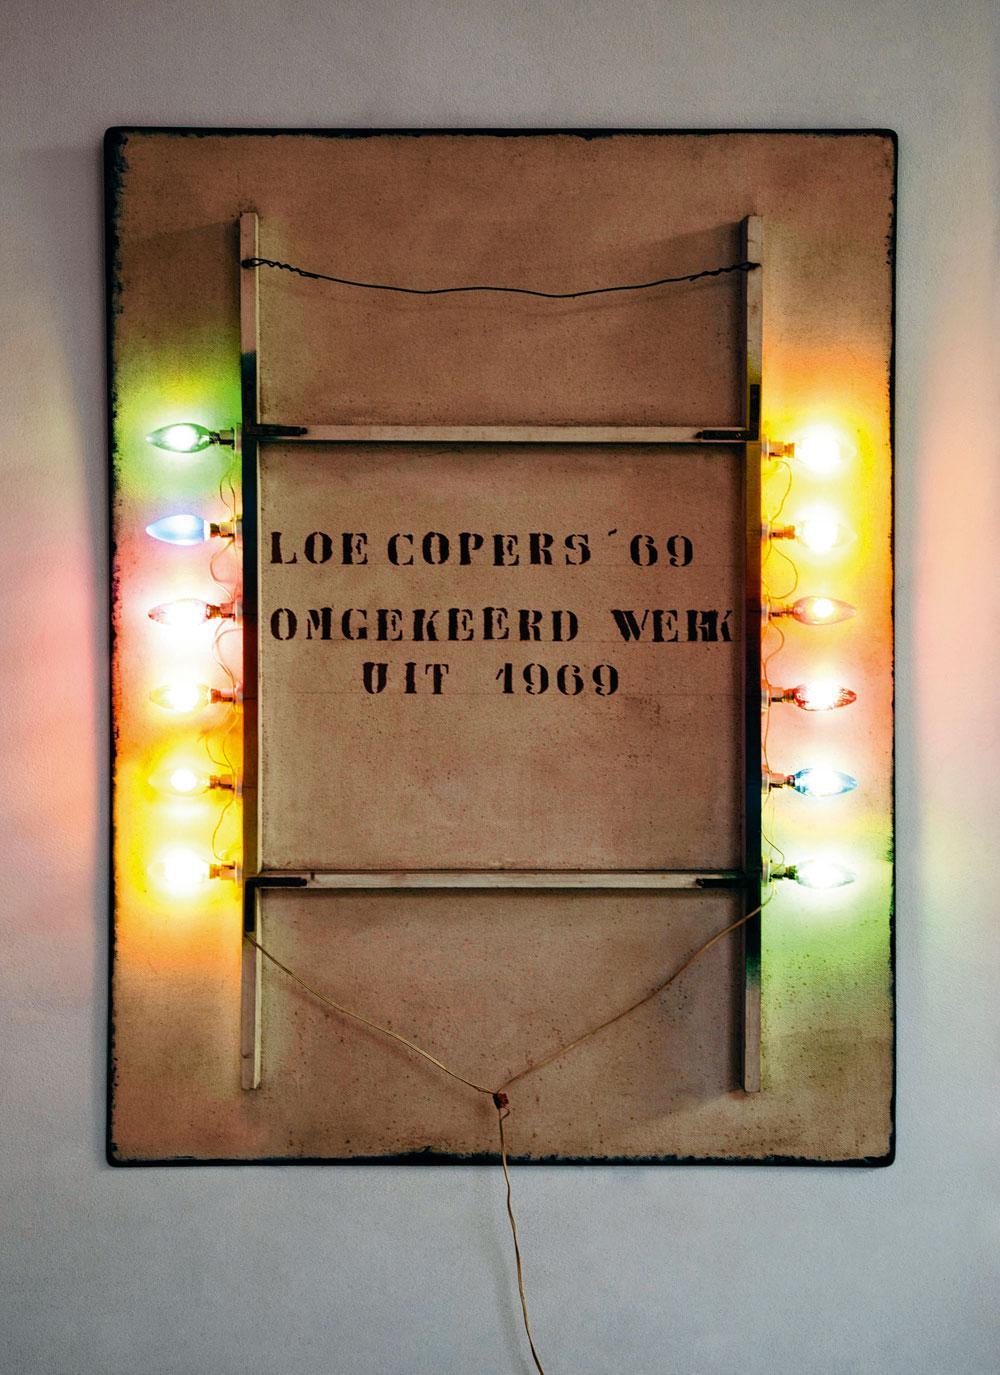 LOE COPERS ´69
OMGEKEERD WERK
UIT 1969